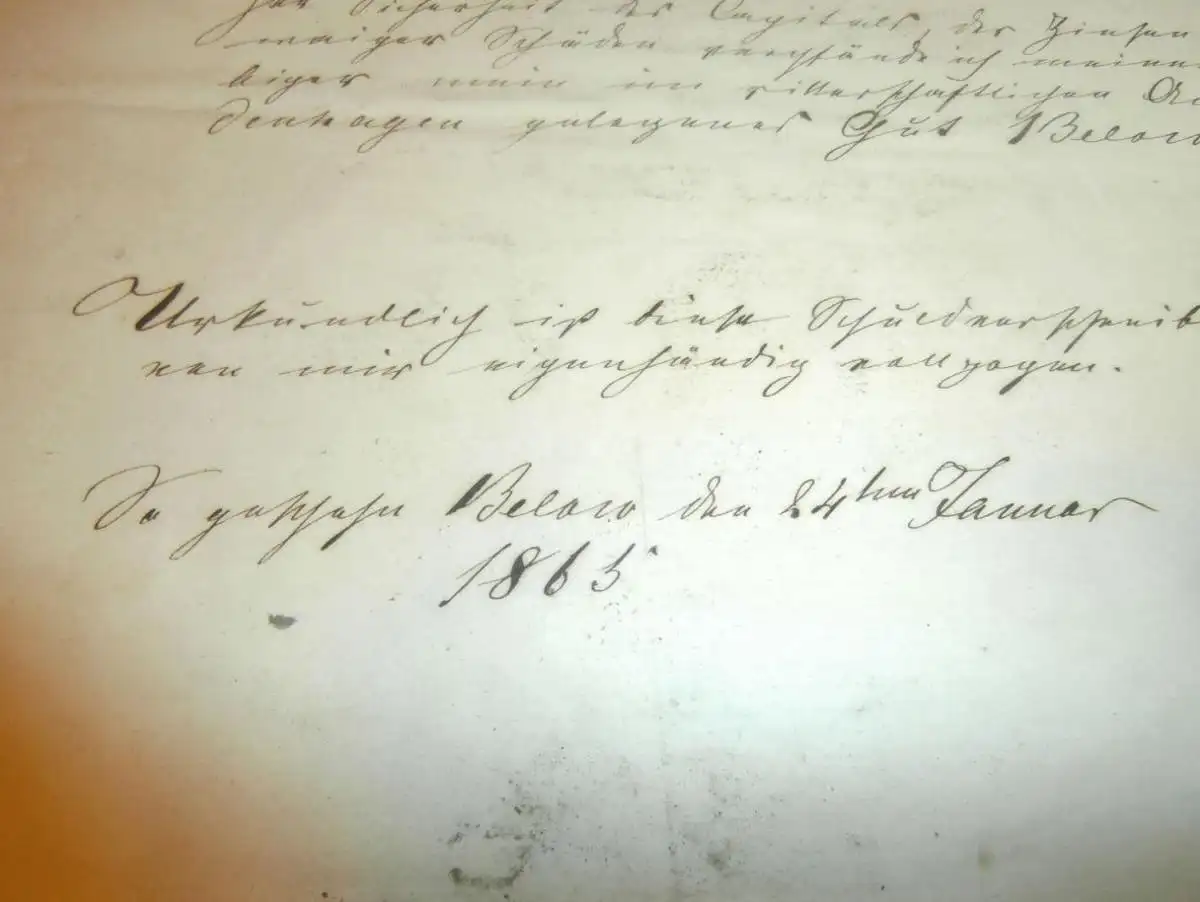 Zur Sicherheit des Capitals, der Zinsen
waiger Schäden verpfände ich meinem
biger mein im ritterschaftlichen
denhagen gelegenes Gut Below
Urkundlich ist diese Schuldverschreib
von mir eigenhändig vollzogen.
So geschehn Below den 24ten Januar
1865